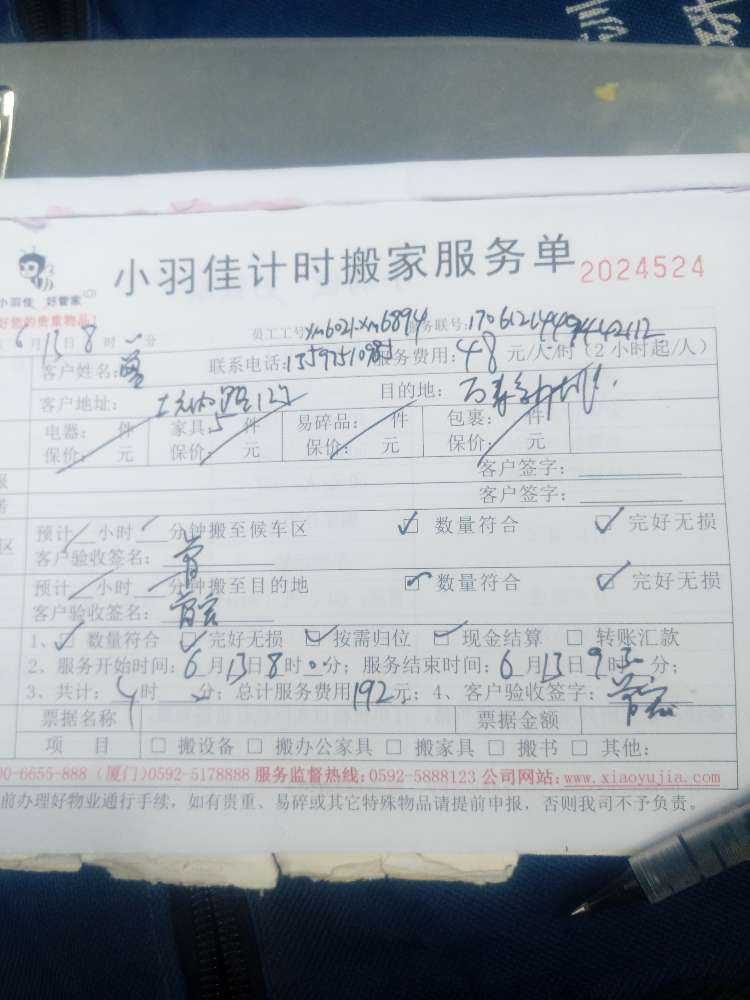 小羽佳计时搬家服务单 2024524
小羽佳 好管家
好您的贵重物品!
6月13日8时 分 员工工号xm6021.xm6894 服务联号:
客户姓名:曾 联系电话: 服务费用:48元/人/时(2小时起/人)
客户地址: 目的地:
电器: 件 家具:5件 易碎品: 件 包裹: 件
保价: 元 保价: 元 保价: 元 保价: 元
客户签字:
客户签字:
区 预计 小时 分钟搬至候车区 ☑ 数量符合 ☑ 完好无损
客户验收签名:曾
预计 小时 分钟搬至目的地 ☑ 数量符合 ☑ 完好无损
客户验收签名:
1、☑ 数量符合 ☑ 完好无损 ☑ 按需归位 ☑ 现金结算 □ 转账汇款
2、服务开始时间:6月13日8时0分;服务结束时间:6月13日9时 分;
3、共计:4时 分;总计服务费用192元;4、客户验收签字:
票据名称 票据金额
项 目 □ 搬设备 □ 搬办公家具 □ 搬家具 □ 搬书 □ 其他:
00-6655-888(厦门)0592-5178888 服务监督热线:0592-5888123 公司网站:www.xiaoyujia.com
前办理好物业通行手续,如有贵重、易碎或其它特殊物品请提前申报,否则我司不予负责。